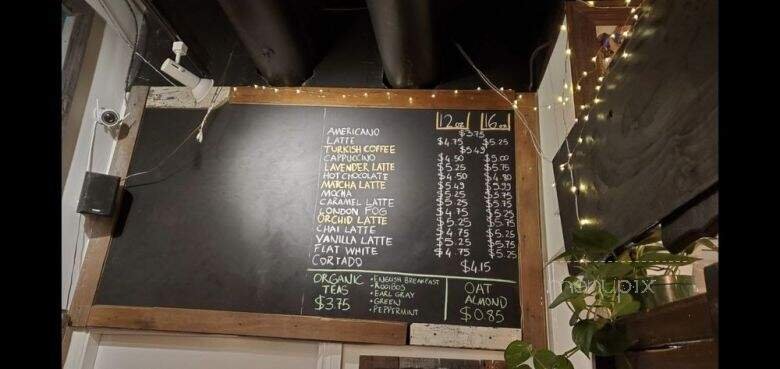 12 oz 16 oz
AMERICANO $3.75
LATTE $4.75 $5.25
TURKISH COFFEE $5.49
CAPPUCCINO $4.50 $5.00
LAVENDER LATTE $5.25 $5.75
HOT CHOCOLATE $4.50 $4.90
MATCHA LATTE $5.49 $5.99
MOCHA $5.25 $5.75
CARAMEL LATTE $5.25 $5.75
LONDON FOG $4.75 $5.25
ORCHID LATTE $5.25 $5.75
CHAI LATTE $4.75 $5.25
VANILLA LATTE $5.25 $5.75
FLAT WHITE $4.75 $5.25
CORTADO $4.15
ORGANIC
TEAS
$3.75
• ENGLISH BREAKFAST
• ROOIBOS
• EARL GRAY
• GREEN
• PEPPERMINT
OAT
ALMOND
$0.85
menupix